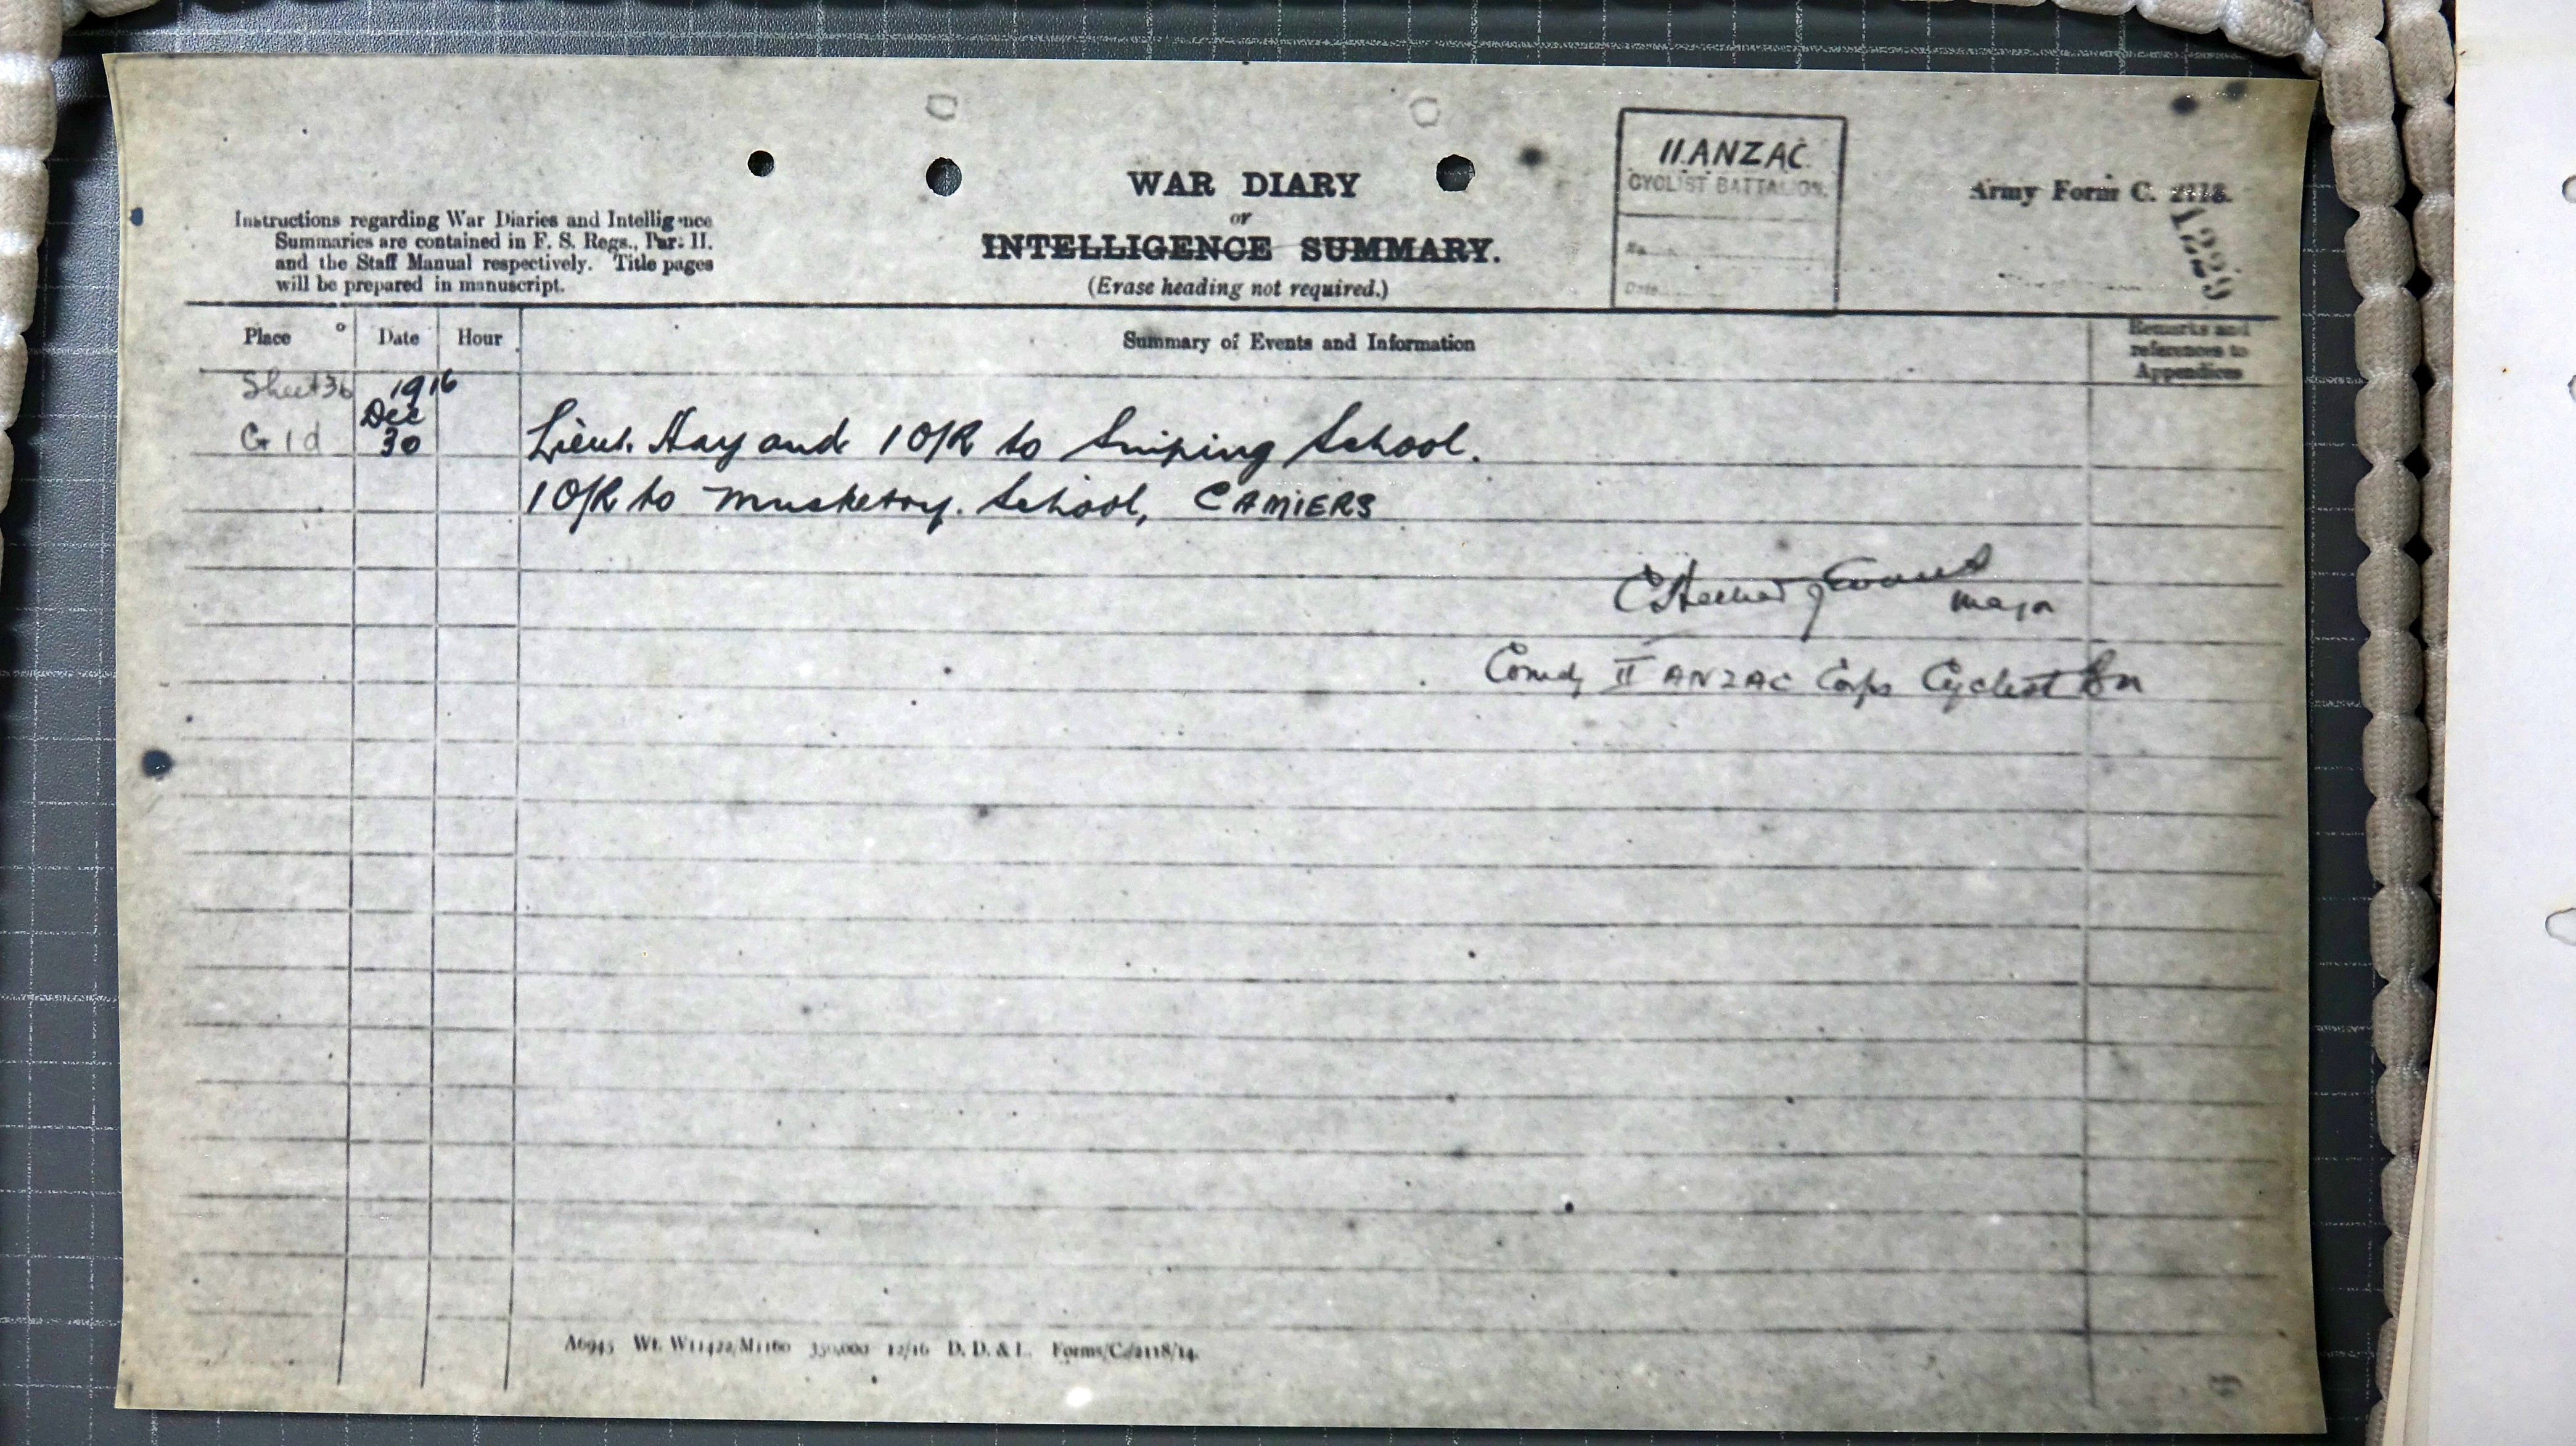 Instructions regarding War Diaries and Intelligence
Summaries are contained in F. S. Regs., Part II.
and the Staff Manual respectively. Title pages
will be prepared in manuscript.
WAR DIARY
or
INTELLIGENCE SUMMARY.
(Erase heading not required.)
II ANZAC
CYCLIST BATTALION.
No.
Date
Army Form C. 2118.
Place Date Hour Summary of Events and Information Remarks and
references to
Appendices
Sheet 36 1916
Dec
G 1 d 30 Lieut. Hay and 1 O/R to Sniping School.
1 O/R to Musketry. School, CAMIERS
Evans
Major
Comdg II ANZAC Corps Cyclist Bn
A6945 Wt. W11422/M1160 350,000 12/16 D. D. & L. Forms/C./2118/14.